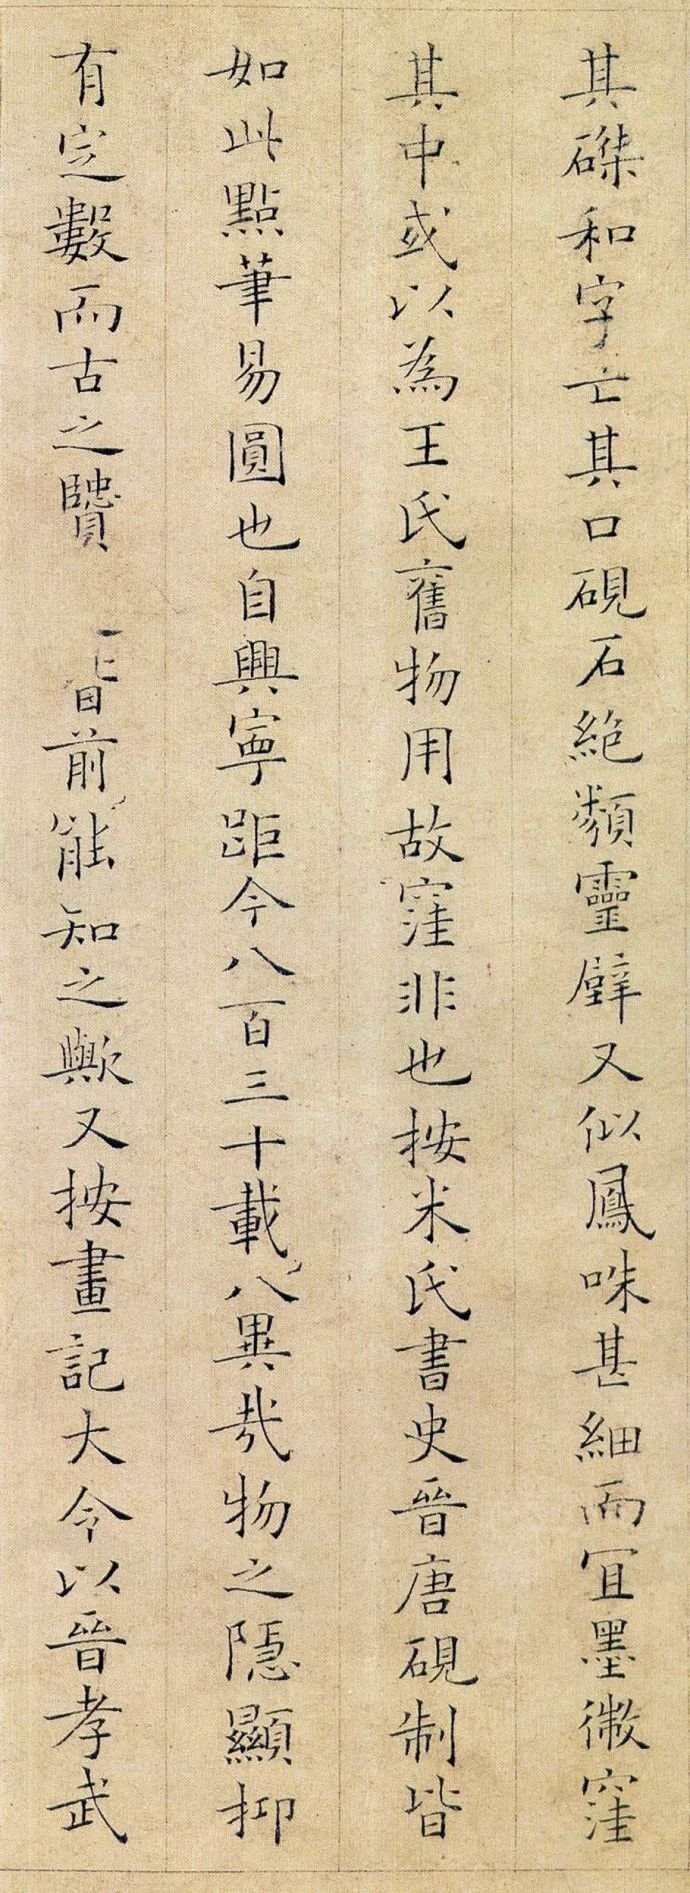 其磔和字亡其口硯石絶類靈璧又似鳳咮甚細而宜墨微窪
其中或以為王氏舊物用故窪非也按米氏書史晉唐硯制皆
如此點筆易圓也自興寧距今八百三十載八異哉物之隱顯抑
有定數而古之贒 前能知之歟又按畫記大令以晉孝武